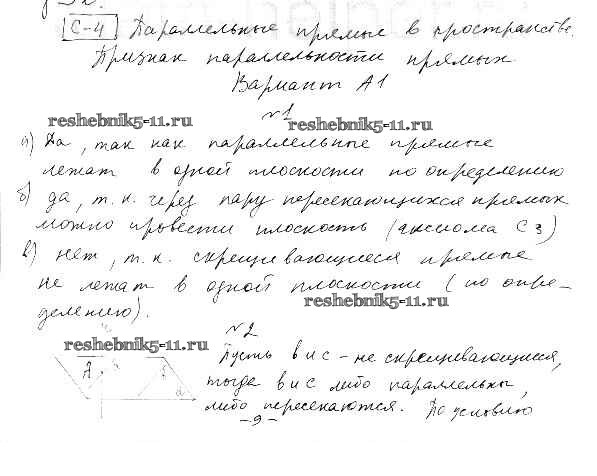 С-4 Параллельные прямые в пространстве.
Признак параллельности прямых
Вариант А1
№1
reshebnik5-11.ru
reshebnik5-11.ru
а) Да, так как параллельные прямые
лежат в одной плоскости по определению
б) да, т.к. через пару пересекающихся прямых
можно провести плоскость (аксиома С3)
в) нет, т.к. скрещивающиеся прямые
не лежат в одной плоскости (по опре-
делению).
reshebnik5-11.ru
№2
reshebnik5-11.ru
Пусть в и с - не скрещивающиеся,
тогда в и с либо параллельны,
либо пересекаются. По условию
-9-